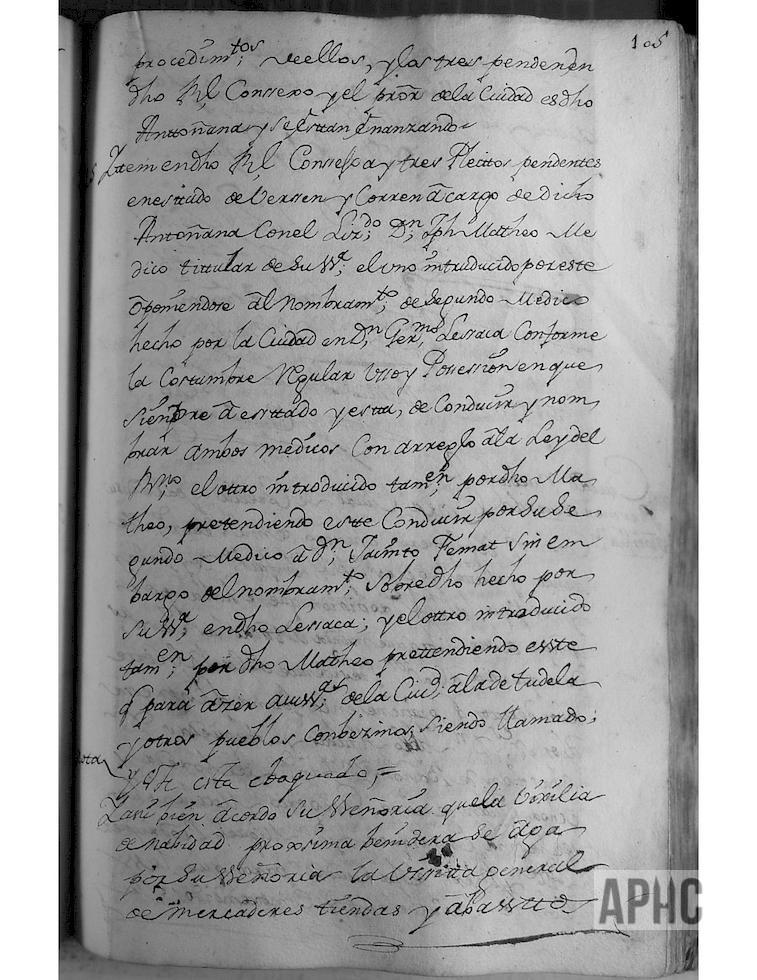 105
procedimtos; de ellos, y los tres penden en
dho Rl Conssexo y el pror de la Ciudad es dho
Antoñana y se estan finanzando
Ittem en dho Rl Conssejo ay tres Pleitos pendentes
en estado de Versen y Corren a cargo de Dicho
Antoñana Con el Lizdo; Dn; Jph Matheo Me
dico tittular de Su Sa; el Uno introducido por este
oponiendose al Nombramto; de Segundo Medico
hecho por la Ciudad en Dn; Germo; Lessaca Conforme
la Costumbre Regular Usso y Possession en que
siempre a esttado y esta, de Conducir y nom
brar ambos medicos Con arreglo a la Ley del
Rno; el ottro introducido tamen; por dho Ma
theo, pretendiendo este Conducir por Su Se
gundo Medico a Dn; Jacinto Femat Sin em
bargo del nombramto; Sobre dho hecho por
Su Sa; en dho Lessaca; y el ottro introducido
tamen; por dho Matheo prettendiendo este
q para azer de la Ciud; a la de tudela
y otros pueblos Conbezinos, siendo llamado;
y este esta
Tambien acordo Su Señoria que la Vixilia
de nabidad proxsima benidera se aga
por Su Señoria la Visita general
de mercaderes tiendas y
APHC